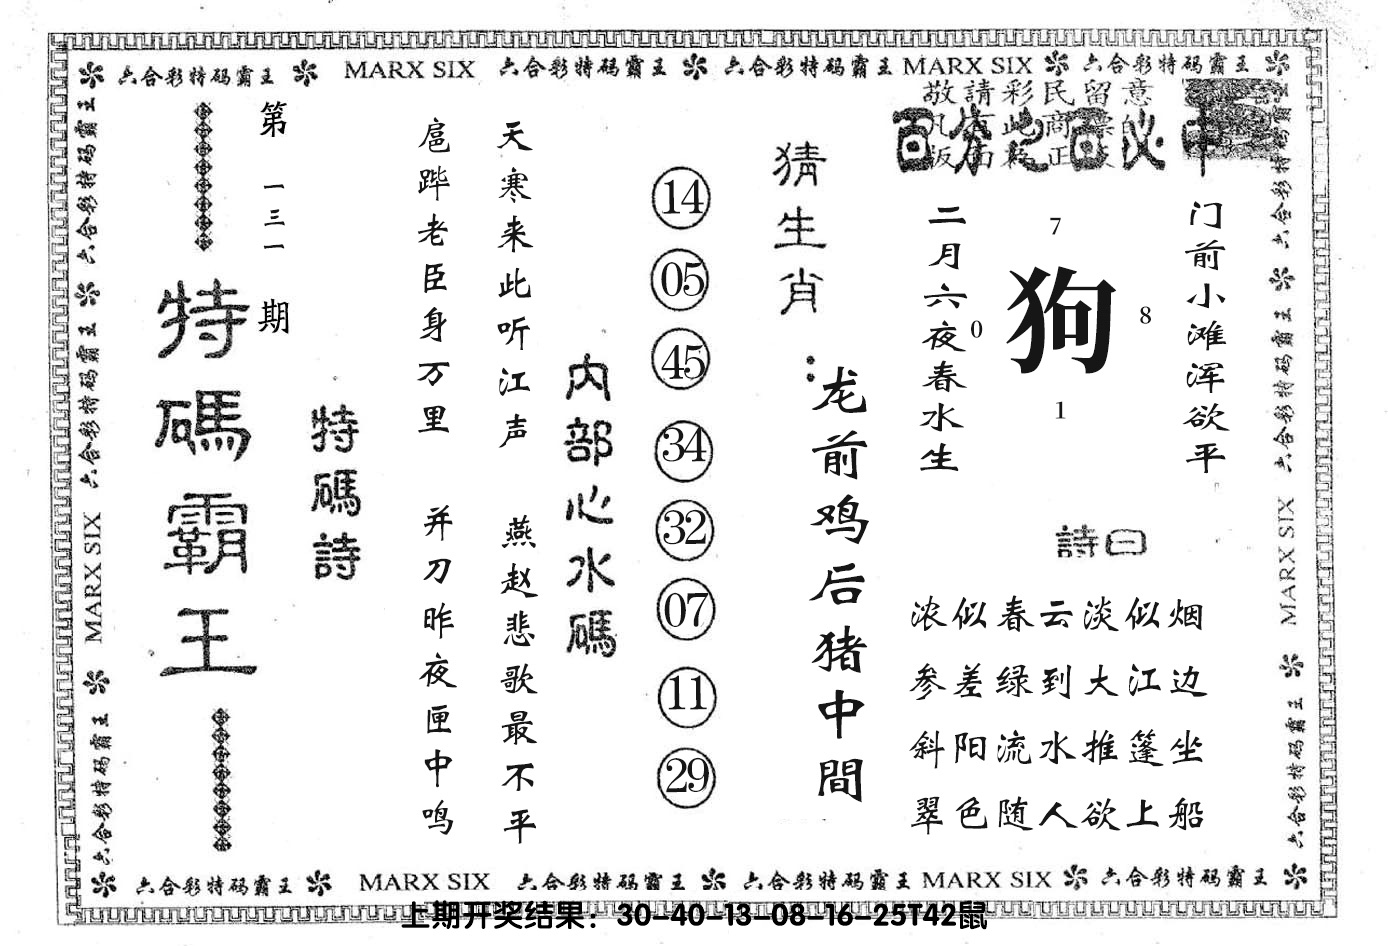 六合彩特码霸王 MARX SIX 六合彩特码霸王 六合彩特码霸王 MARX SIX 六合彩特码霸王
敬請彩民留意
门前小滩浑欲平
7
0 狗 8
1
二月六夜春水生
詩曰
浓似春云淡似烟
参差绿到大江边
斜阳流水推篷坐
翠色随人欲上船
猜生肖：
龙前鸡后猪中間
14
05
45
34
32
07
11
29
内部心水碼
天寒来此听江声 燕赵悲歌最不平
扈跸老臣身万里 并刀昨夜匣中鸣
特碼詩
第一三一期
特碼霸王
六合彩特码霸王 六合彩特码霸王 MARX SIX 六合彩特码霸王
六合彩特码霸王 六合彩特码霸王 MARX SIX 六合彩特码霸王
六合彩特码霸王 MARX SIX 六合彩特码霸王 六合彩特码霸王 MARX SIX 六合彩特码霸王
上期开奖结果：30-40-13-08-16-25T42鼠